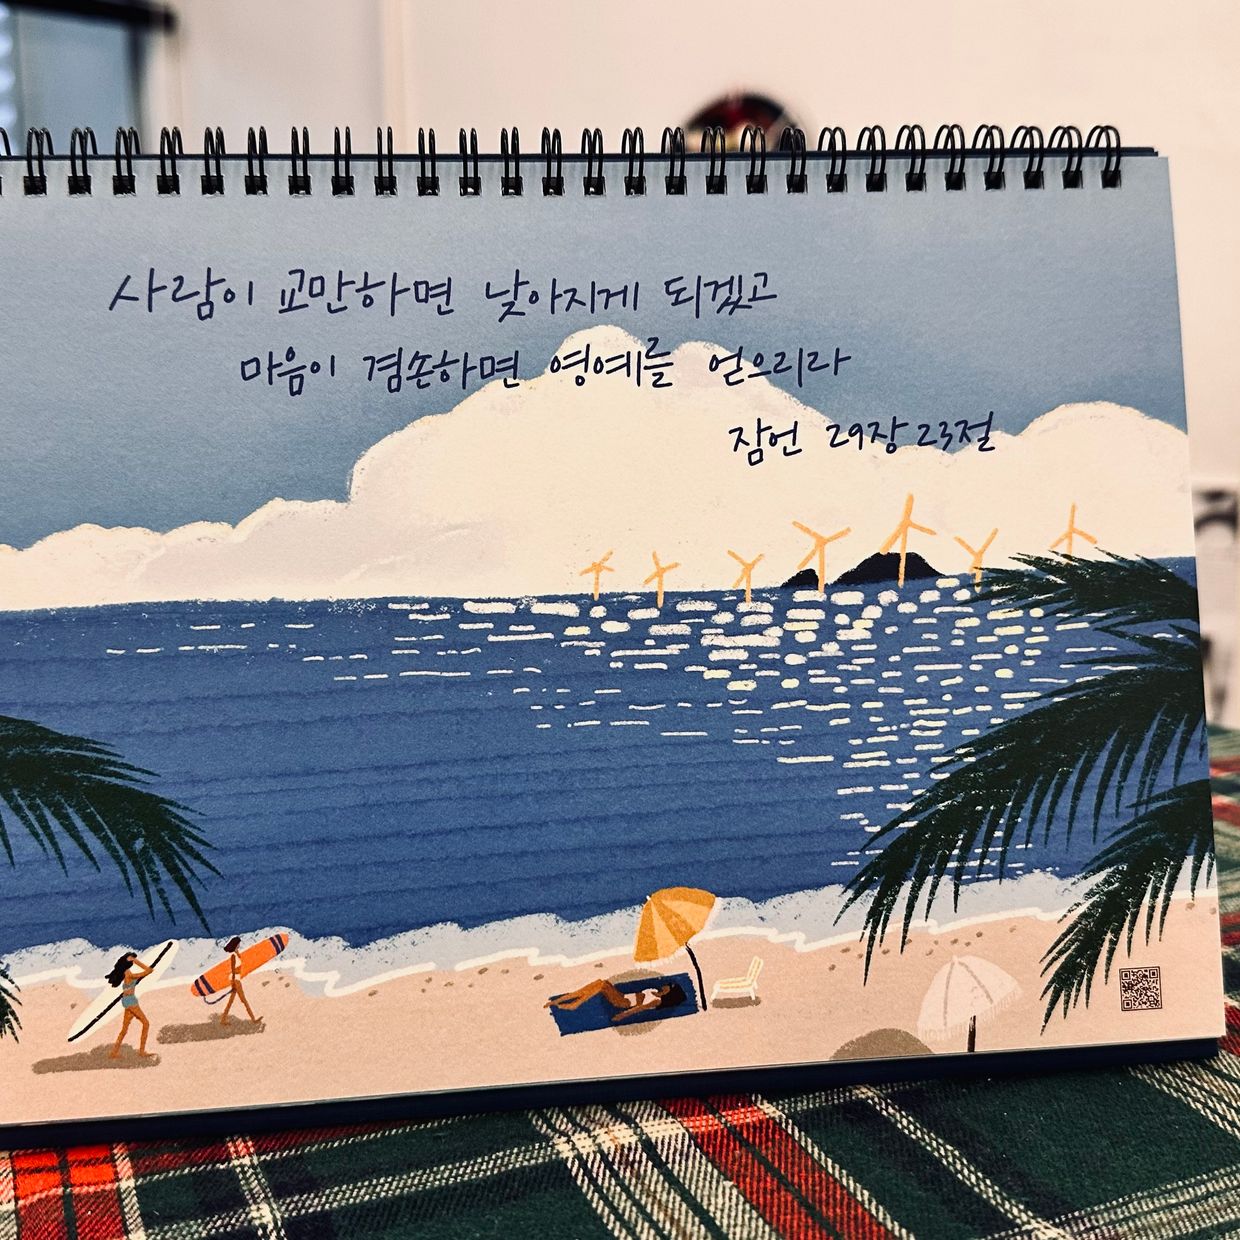 사람이 교만하면 낮아지게 되겠고
마음이 겸손하면 영예를 얻으리라
잠언 29장 23절